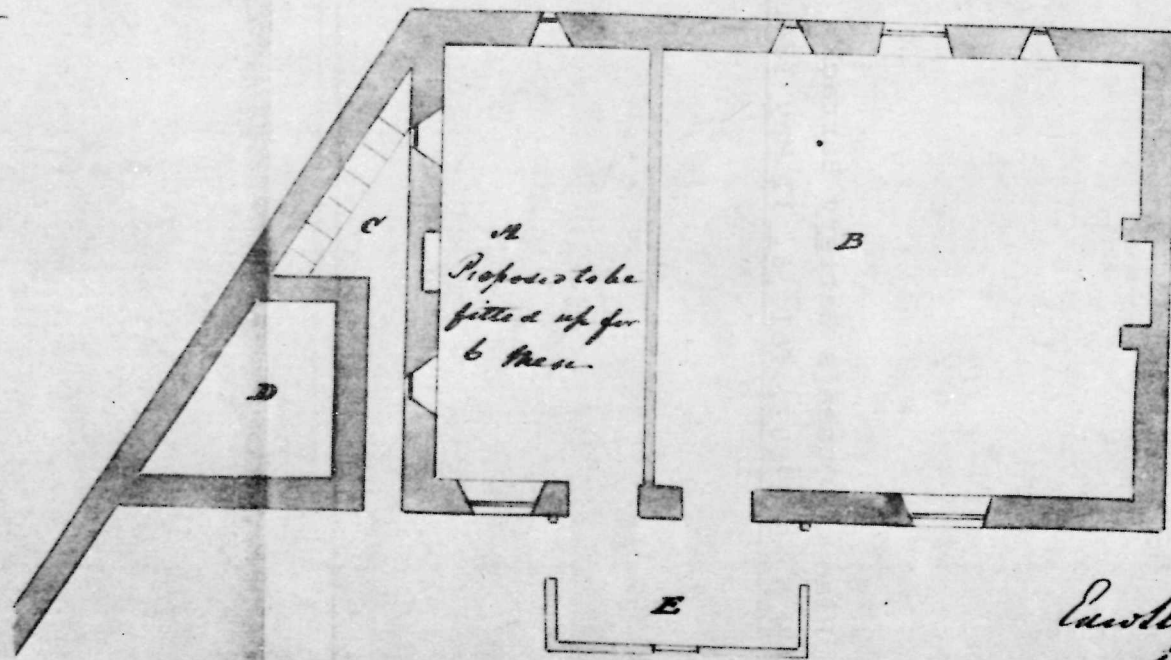 C
A
Proposed to be
fitted up for
6 Men
B
D
E